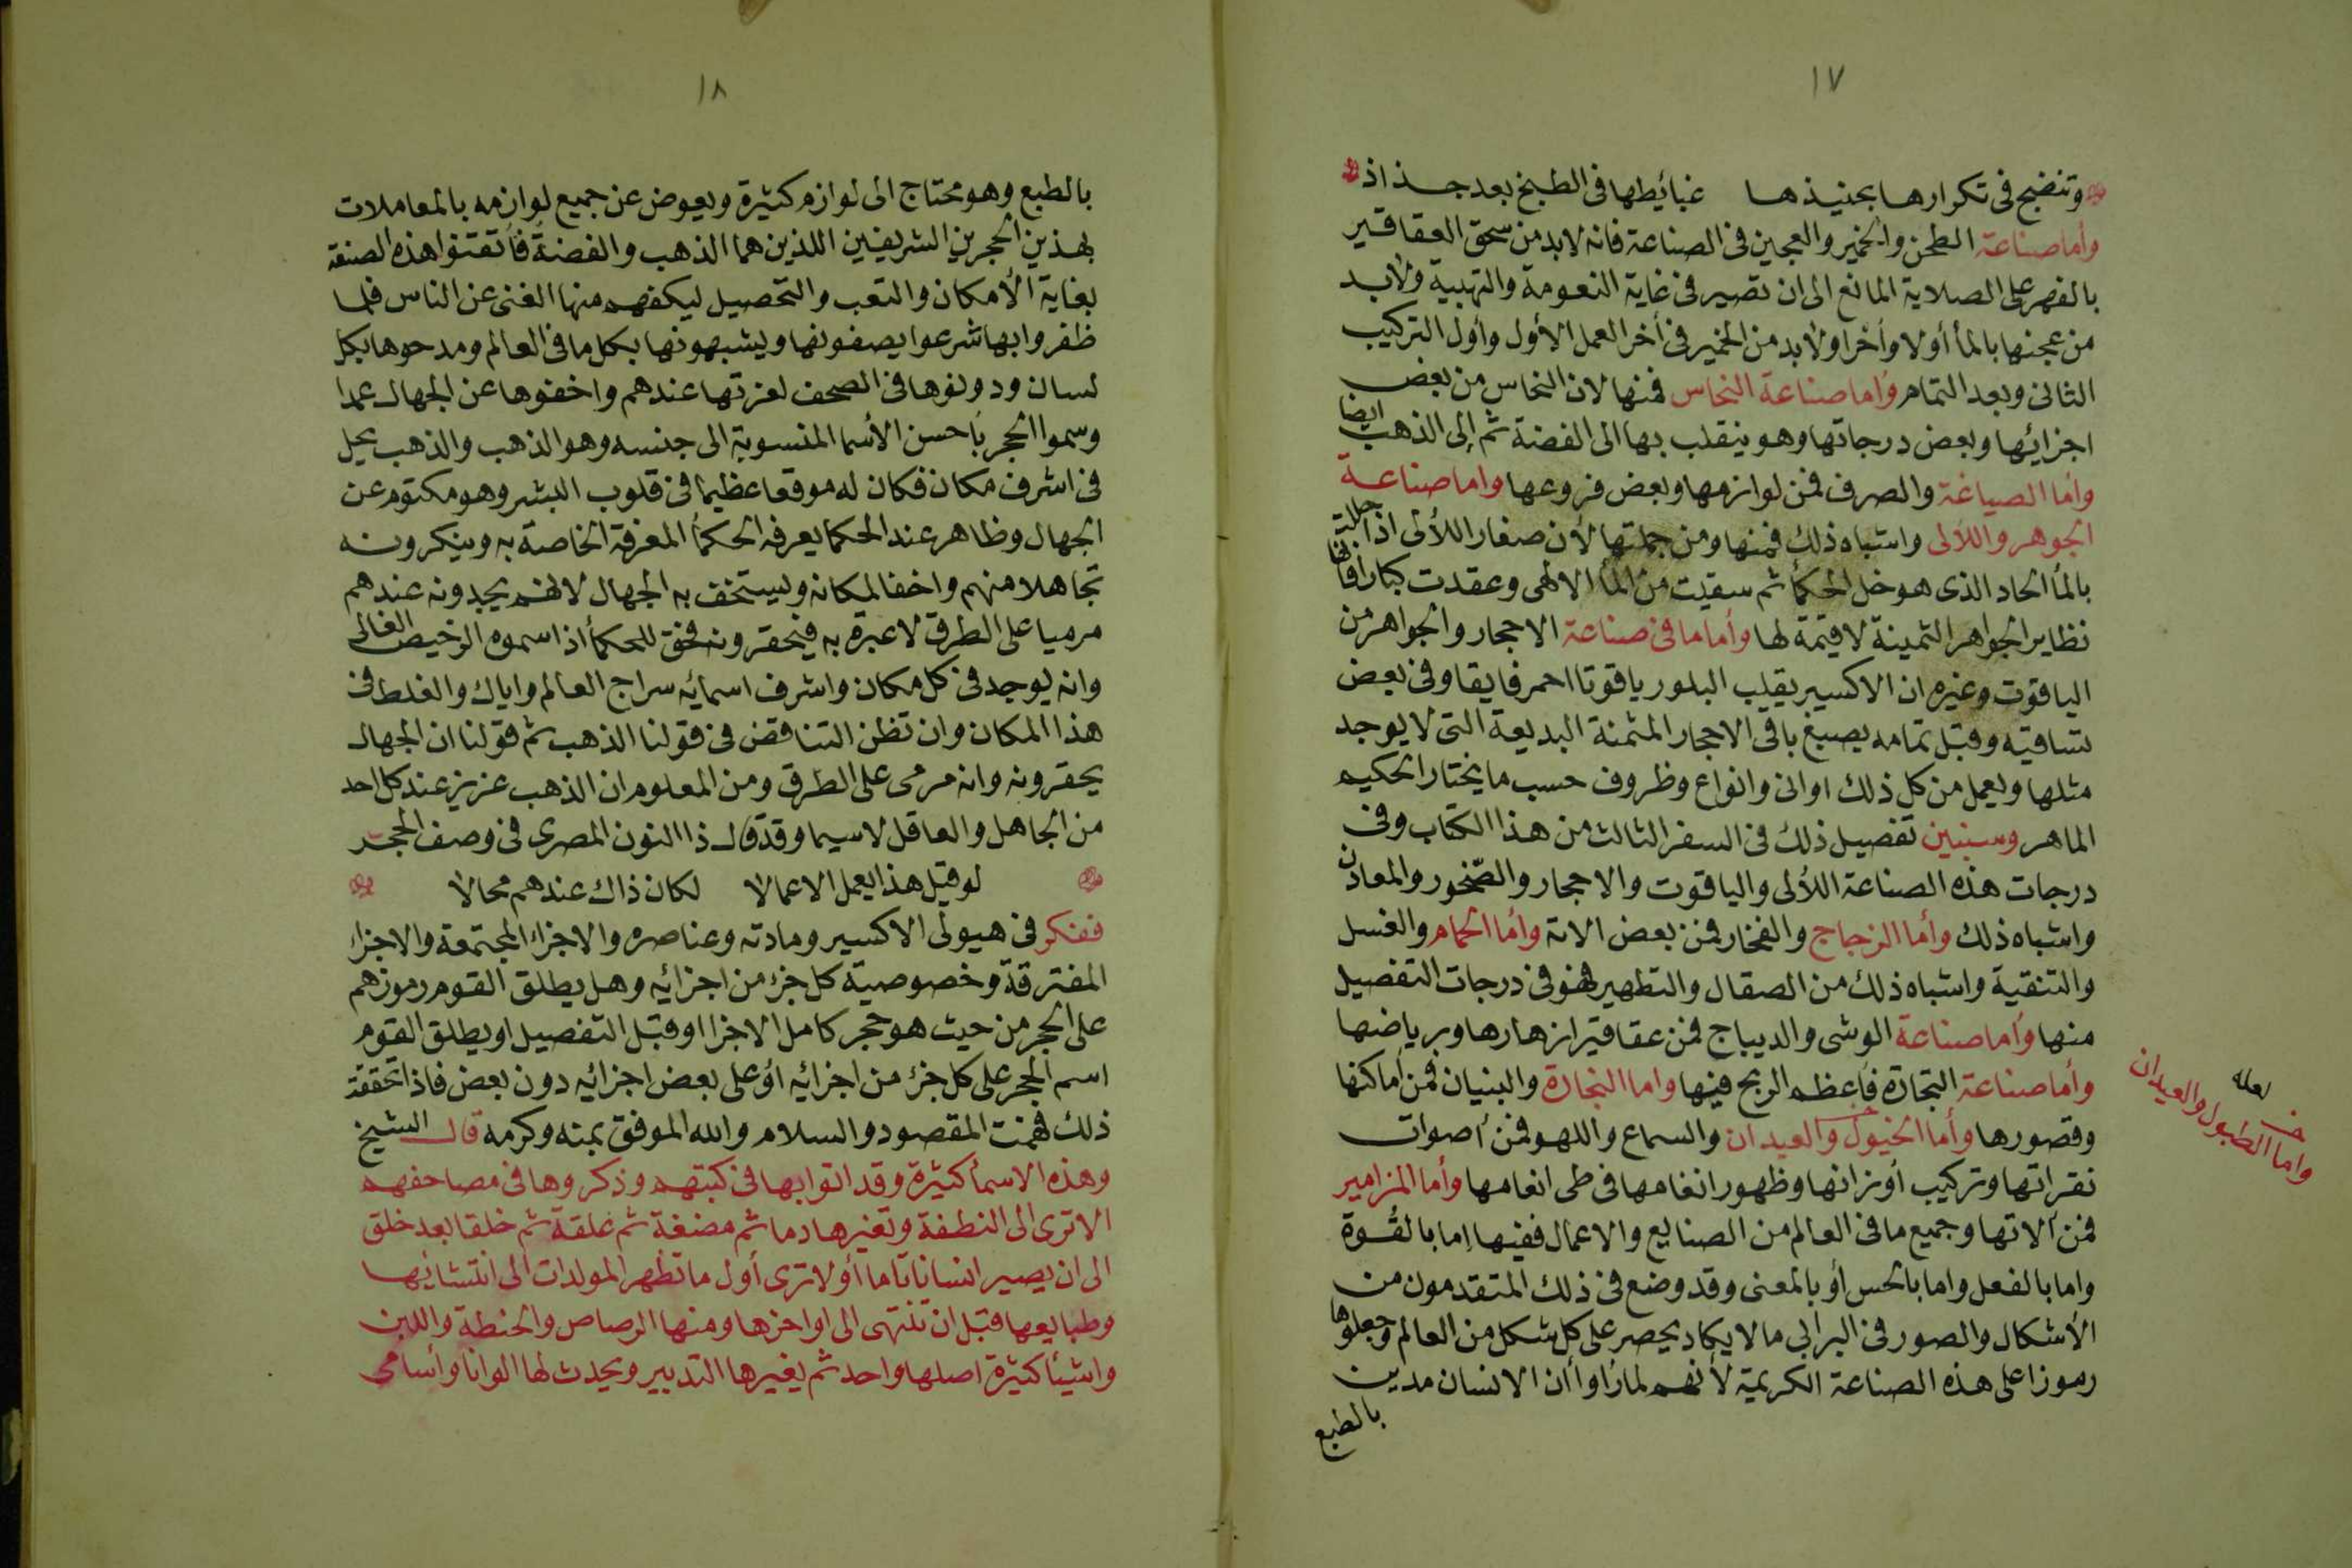 ١٧
وتنضج فى تكرارها بحنيذها غبائطها فى الطبخ بعد جذاذ
وأما صناعة الطحن والخمير والعجين فى الصناعة فانه لابد من سحق العقاقير
بالفهر على الصلاية المانع الى ان تصير فى غاية النعومة والتهبية ولابد
من عجنها بالمأ أولا وأخرا ولابد من الخمير فى أخر العمل الأول وأول التركيب
الثانى وبعد التمام وأما صناعة النحاس فمنها لان النحاس من بعض
اجزائها وبعض درجاتها وهو ينقلب بها الى الفضة ثم إلى الذهب ايضا
وأما الصياغة والصرف فمن لوازمها وبعض فروعها واما صناعة
الجوهر واللألى واشباه ذلك فمنها ومن جملتها لأن صغار اللألى اذا حللت
بالمأ الحاد الذى هو خل الحكمأ ثم سقيت من المأ الالهى وعقدت كبارا فانها
نظاير الجواهر الثمينة لا قيمة لها وأما ما فى صناعة الاحجار والجواهر من
الياقوت وغيره ان الاكسير يقلب البلور ياقوتا احمر فايقا وفى بعض
تساقيه وقبل تمامه يصبغ باقى الاحجار المثمنة البديعة التى لا يوجد
مثلها ويعمل من كل ذلك اوانى وانواع وظروف حسب ما يختار الحكيم
الماهر وسنبين تفصيل ذلك فى السفر الثالث من هذا الكتاب وفى
درجات هذه الصناعة اللألى والياقوت والاحجار والصخور والمعادن
واشباه ذلك وأما الزجاج والفخار فمن بعض الاته وأما الحمام والغسل
والتنقية واشباه ذلك من الصقال والتطهير فهو فى درجات التفصيل
منها وأما صناعة الوشى والديباج فمن عقاقير ازهارها وبرياضها
وأما صناعة التجارة فأعظم الربح فيها واما النجارة والبنيان فمن أماكنها
وقصورها وأما الخيول والعيدان والسماع واللهو فمن أصوات
لعله
خ
واما الطبول والعيدان
نقراتها وتركيب أوزانها وظهور انغامها فى طى انغامها وأما المزامير
فمن ألاتها وجميع ما فى العالم من الصنايع والاعمال ففيها اما بالقوة
واما بالفعل واما بالحس أو بالمعنى وقد وضع فى ذلك المتقدمون من
الأشكال والصور فى البرابى ما لا يكاد يحصر على كل شكل من العالم وجعلوها
رموزا على هذه الصناعة الكريمة لأنهم لما رأوا أن الانسان مدين
بالطبع
١٨
بالطبع وهو محتاج الى لوازم كثيرة ويعوض عن جميع لوازمه بالمعاملات
بهذين الحجرين الشريفين اللذين هما الذهب والفضة فأتقتنوا هذه الصنعة
بغاية الأمكان والتعب والتحصيل ليكفهم منها الغنى عن الناس فلما
ظفروا بها شرعوا يصفونها ويشبهونها بكل ما فى العالم ومدحوها بكل
لسان ودونوها فى الصحف لعزتها عندهم واخفوها عن الجهال عمدا
وسموا الحجر بأحسن الأسما المنسوبة الى جنسه وهو الذهب والذهب يحل
فى اشرف مكان فكان له موقعا عظيما فى قلوب البشر وهو مكتوم عن
الجهال وظاهر عند الحكما يعرفه الحكمأ المعرفة الخاصة به وينكرونه
تجاهلا منهم واخفا لمكانه ويستخف به الجهال لانهم يجدونه عندهم
مرميا على الطرق لا عبرة به فيحقرونه فحق للحكمأ اذا سموه الرخيص الغالى
وانه يوجد فى كل مكان واشرف اسمائه سراج العالم واياك والغلط فى
هذا المكان وان تظن التناقض فى قولنا الذهب ثم قولنا ان الجهال
يحقرونه وانه مرمى على الطرق ومن المعلوم ان الذهب عزيز عند كل احد
من الجاهل والعاقل لاسيما وقد قال ذا النون المصرى فى وصف الحجر
لو قيل هذا يعمل الاعمالا لكان ذاك عندهم محالا
ففكر فى هيولى الاكسير ومادته وعناصره والاجزاء المجتمعة والاجزا
المفترقة وخصوصية كل جزء من اجزائه وهل يطلق القوم رموزهم
على الحجر من حيث هو حجر كامل الاجزا اوقبل التفصيل او يطلق القوم
اسم الحجر على كل جزء من اجزائه أو على بعض اجزائه دون بعض فاذا تحققت
ذلك فهمت المقصود والسلام والله الموفق بمنه وكرمه قال الشيخ
وهذه الاسمأ كثيرة وقد اتوا بها فى كتبهم وذكروها فى مصاحفهم
الاترى الى النطفة وتغيرها دما ثم مضغة ثم علقة ثم خلقا بعد خلق
الى ان يصير انسانا تاما أولا ترى أول ما تظهر المولدات الى انتشائها
وطبايعها قبل ان تنتهى الى اواخرها ومنها الرصاص والحنطة واللبن
واشيئا كثيرة اصلها واحد ثم يغيرها التدبير ويحدث لها الوانا وأسامى